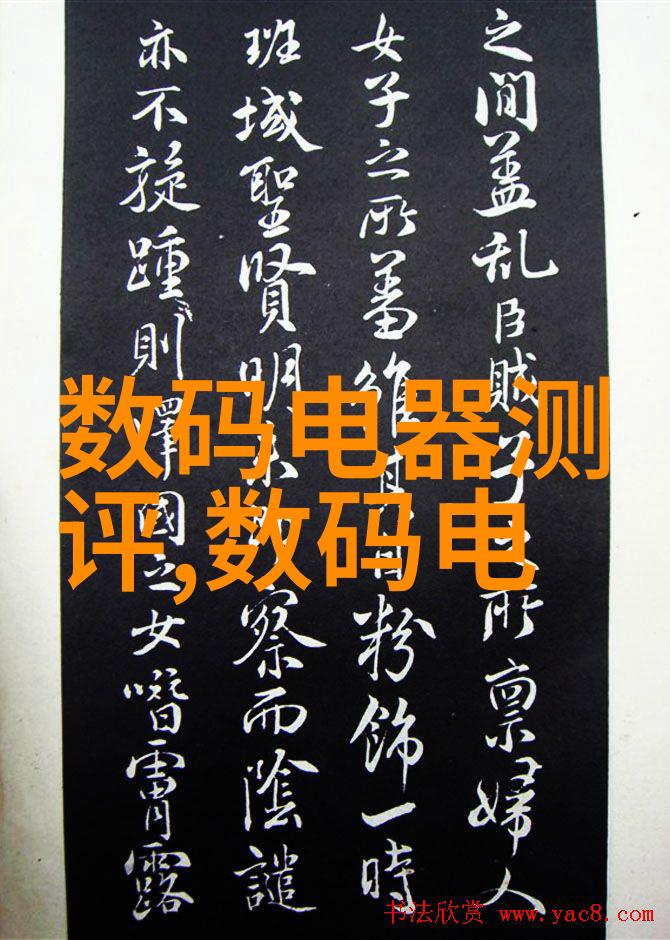 之間盖乱臣賊子之所禀婦人
女子之所蓄雖其自粉飾一時
班域聖賢明未察而陰譴
亦不旋踵則澤國之女噆膚露
数码电器测
评,数码电
书法欣赏 www.yac8.com